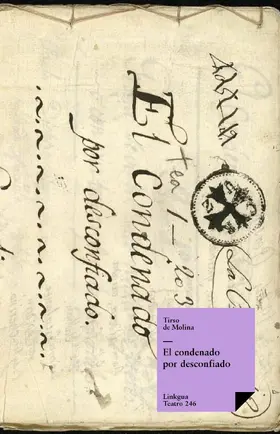 Tea 1-20 3
El Condenado
por desconfiado.
Tirso
de Molina
El condenado
por desconfiado
Linkgua
Teatro 246